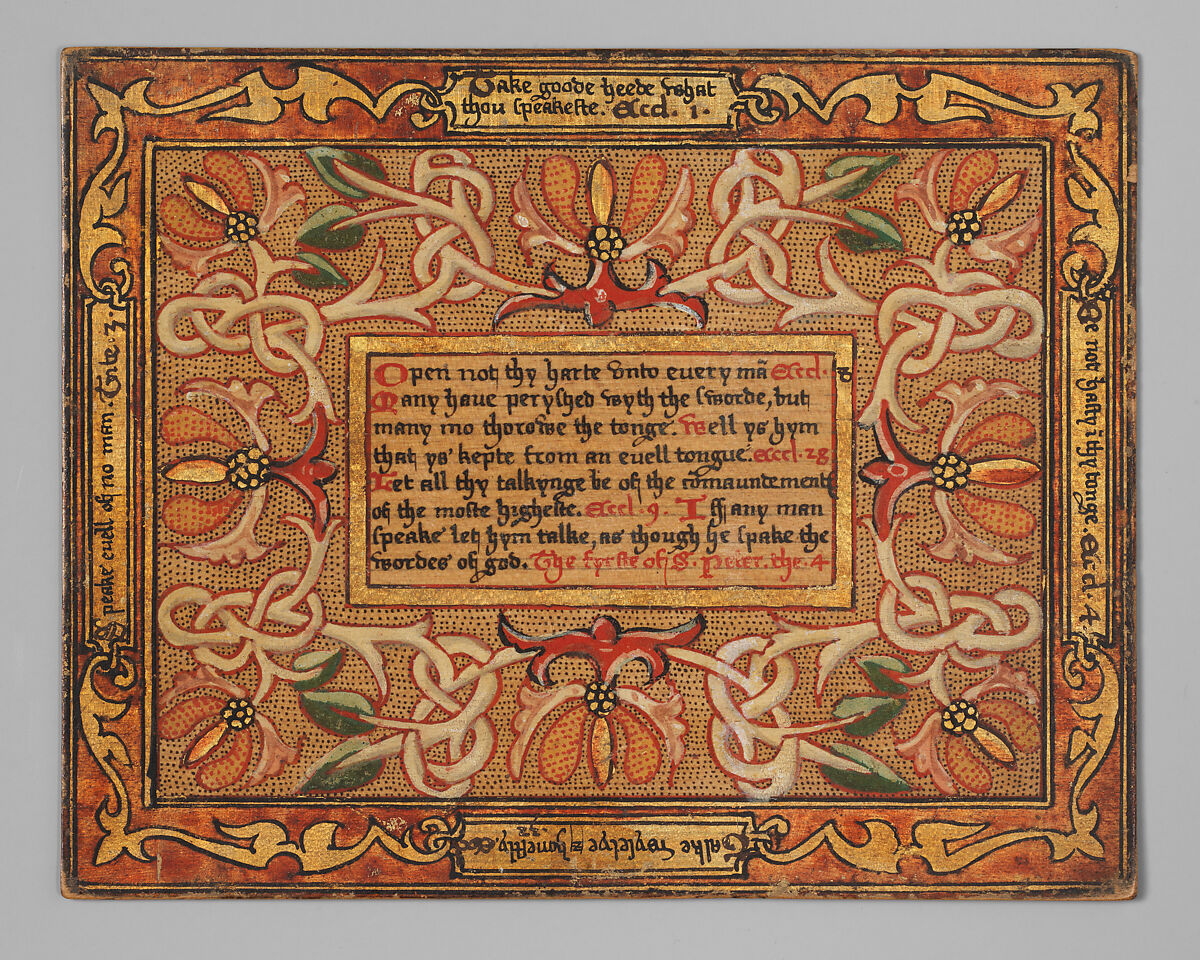 Take goode heede what
thou speakeste. Eccl. 1.
Be not hasty ī thy tonge. Eccl. 4
Talke wyselye & honestly.
Speake euell of no man. Tite. 3
Open not thy harte vnto euery mā Eccl. 8
Many haue peryshed wyth the sworde, but
many mo thorowe the tonge. Well ys hym
that ys kepte from an euell tongue. Eccl. 28
Let all thy talkynge be of the cōmaundement
of the moste higheste. Eccl. 9. Iff any man
speake let hym talke, as though he spake the
wordes of god. The fyrste of S. Peter. the. 4